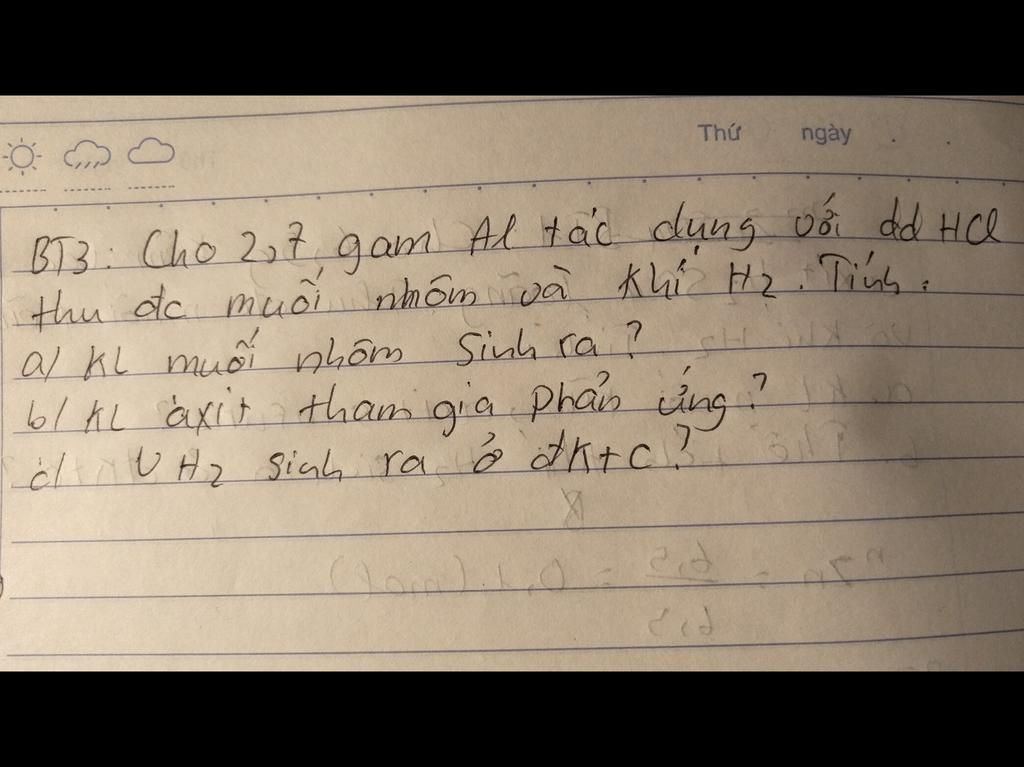 Thứ ngày . .
BT3: Cho 2,7 gam Al tác dụng với dd HCl
thu đc muối nhôm và khí H2. Tính.
a/ KL muối nhôm sinh ra?
b/ KL axit tham gia phản ứng?
c/ V H2 sinh ra ở đktc?